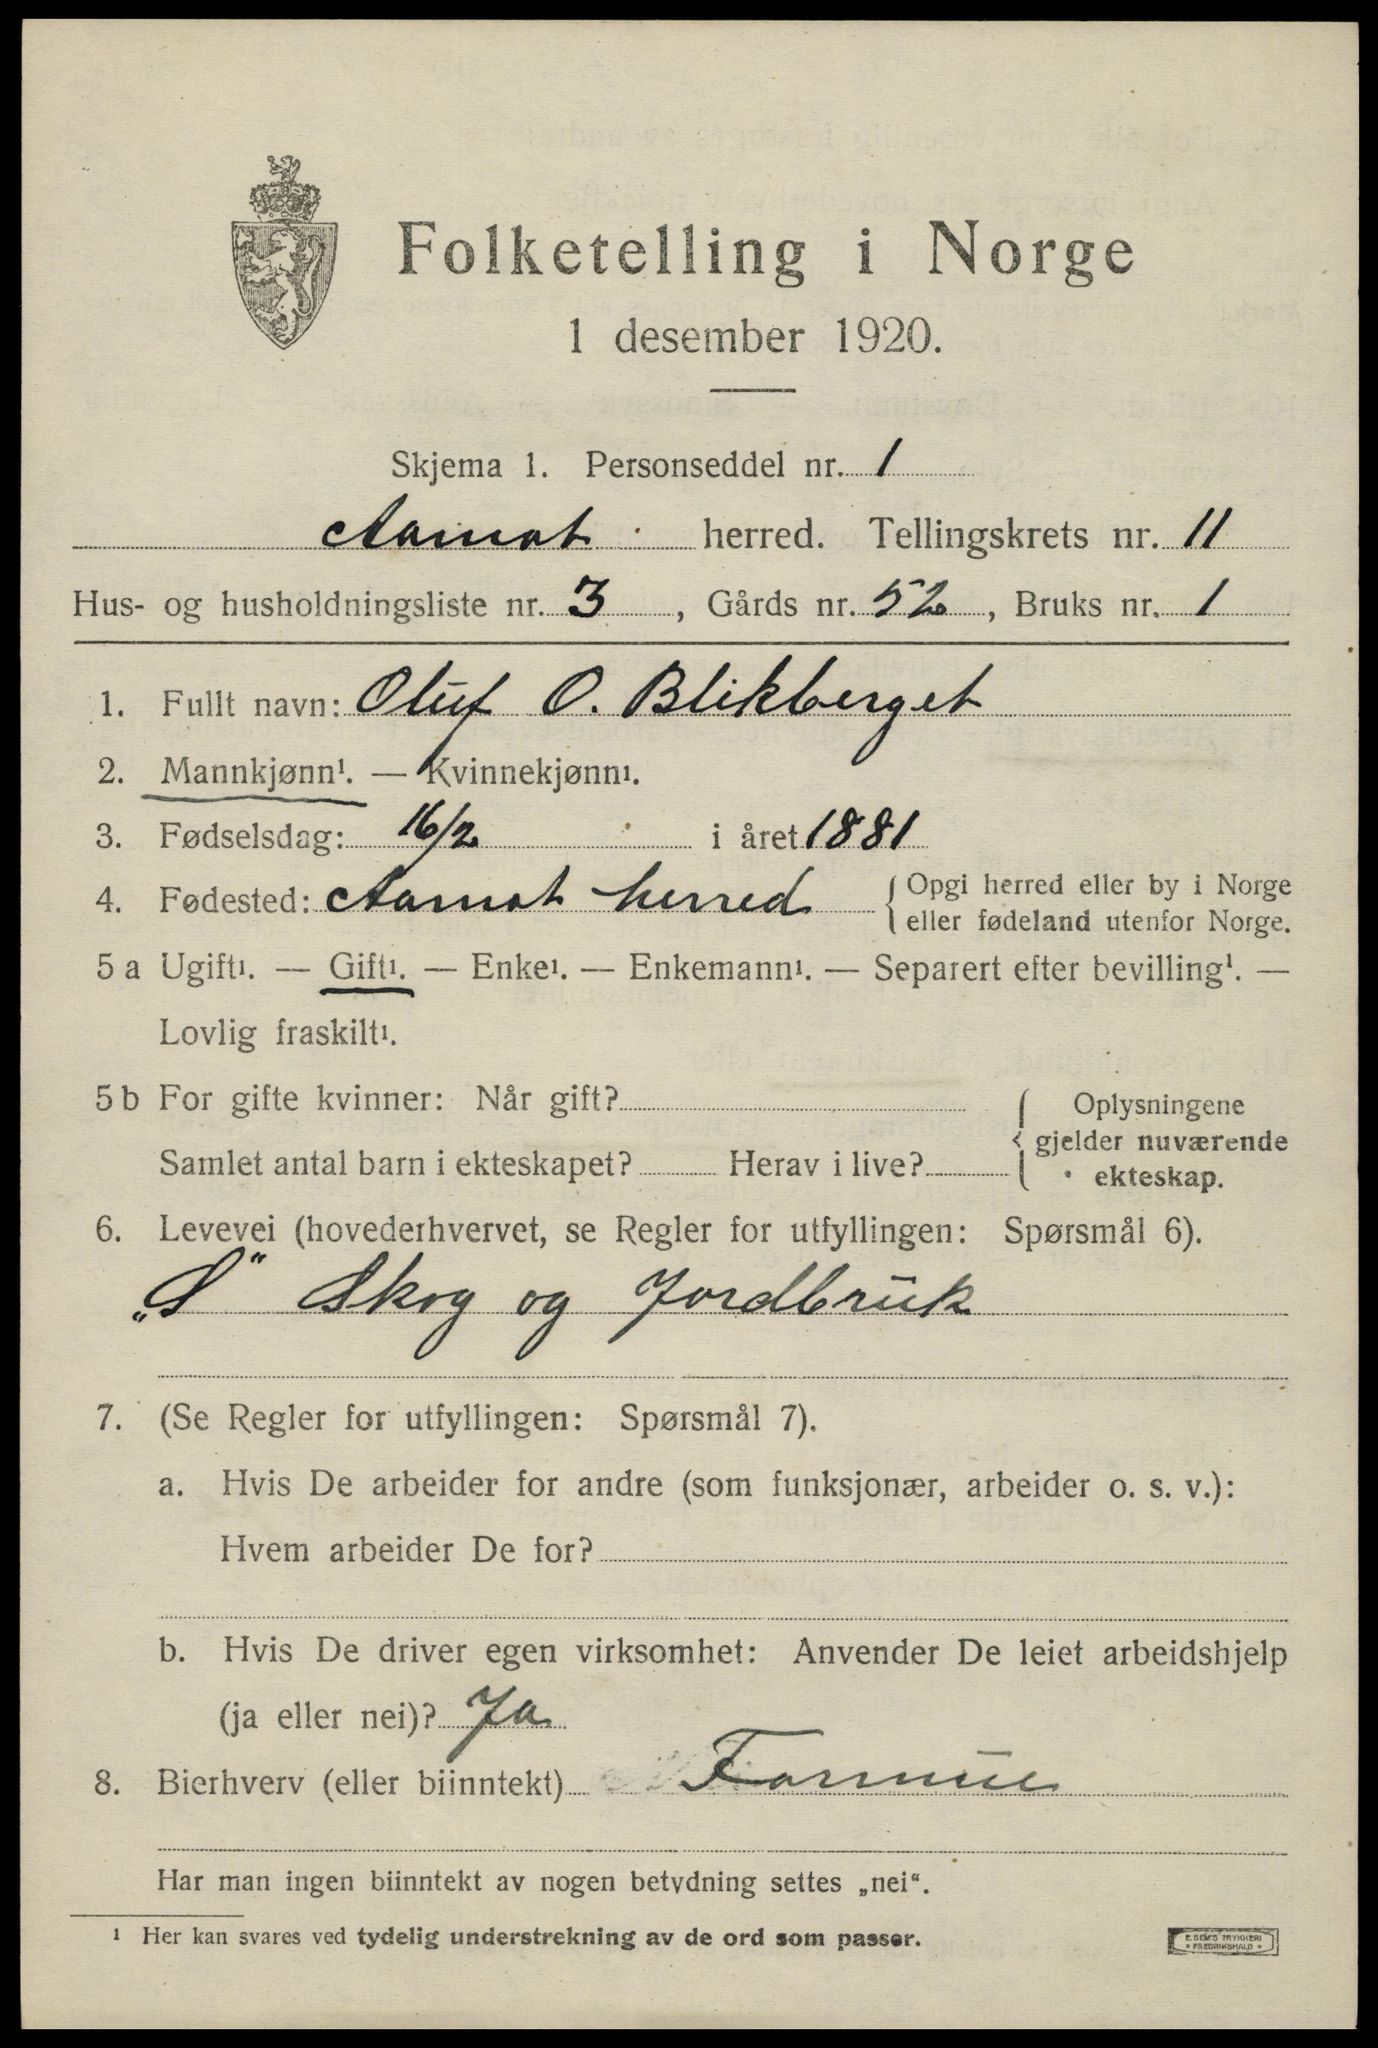 Folketelling i Norge
1 desember 1920.
Skjema 1. Personseddel nr. 1
Aamot herred. Tellingskrets nr. 11
Hus- og husholdningsliste nr. 3, Gårds nr. 52, Bruks nr. 1
1. Fullt navn: Oluf O. Blikberget
2. Mannkjønn¹. — Kvinnekjønn¹.
3. Fødselsdag: 16/2 i året 1881
4. Fødested: Aamot herred {Opgi herred eller by i Norge
eller fødeland utenfor Norge.
5 a Ugift¹. — Gift¹. — Enke¹. — Enkemann¹. — Separert efter bevilling¹. —
Lovlig fraskilt¹.
5 b For gifte kvinner: Når gift? { Oplysningene
gjelder nuværende
Samlet antal barn i ekteskapet? Herav i live? ekteskap.
6. Levevei (hovederhvervet, se Regler for utfyllingen: Spørsmål 6).
„S“ Skog og Jordbruk
7. (Se Regler for utfyllingen: Spørsmål 7).
a. Hvis De arbeider for andre (som funksjonær, arbeider o. s. v.):
Hvem arbeider De for?
b. Hvis De driver egen virksomhet: Anvender De leiet arbeidshjelp
(ja eller nei)? Ja
8. Bierhverv (eller biinntekt) Formue
Har man ingen biinntekt av nogen betydning settes „nei“.
¹ Her kan svares ved tydelig understrekning av de ord som passer.
E. SEM'S TRYKKERI
• FREDRIKSHALD •